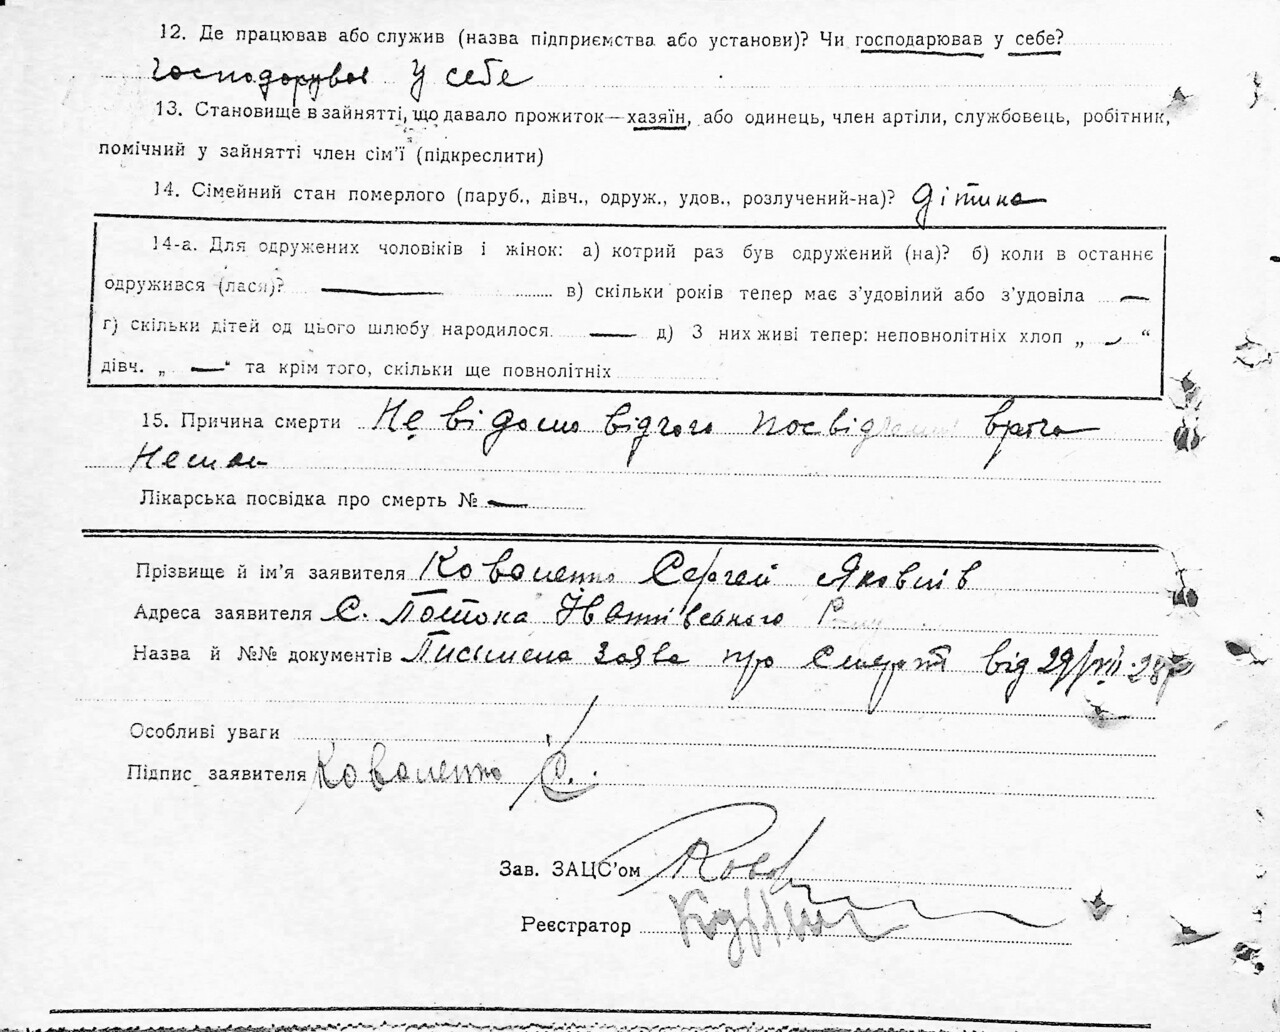 12. Де працював або служив (назва підприємства або установи)? Чи господарював у себе?
господарував у себе
13. Становище в зайнятті, що давало прожиток—хазяїн, або одинець, член артіли, службовець, робітник,
помічний у зайнятті член сім'ї (підкреслити)
14. Сімейний стан померлого (паруб., дівч., одруж., удов., розлучений-на)? Дітина
14-а. Для одружених чоловіків і жінок: а) котрий раз був одружений (на)? б) коли в останнє
одружився (лася)? — в) скільки років тепер має з'удовілий або з'удовіла —
г) скільки дітей од цього шлюбу народилося — д) З них живі тепер: неповнолітніх хлоп „ — “
дівч. „ — “ та крім того, скільки ще повнолітніх
15. Причина смерти Не відомо відчого посвідчення врача
Немає
Лікарська посвідка про смерть № —
Прізвище й ім'я заявителя Коваленко Сергей Яковлів
Адреса заявителя С. Потока
Назва й №№ документів Письмена заява про смерть від 29/VII-28р
Особливі уваги
Підпис заявителя Коваленко С.
Зав. ЗАЦС'ом
Реєстратор